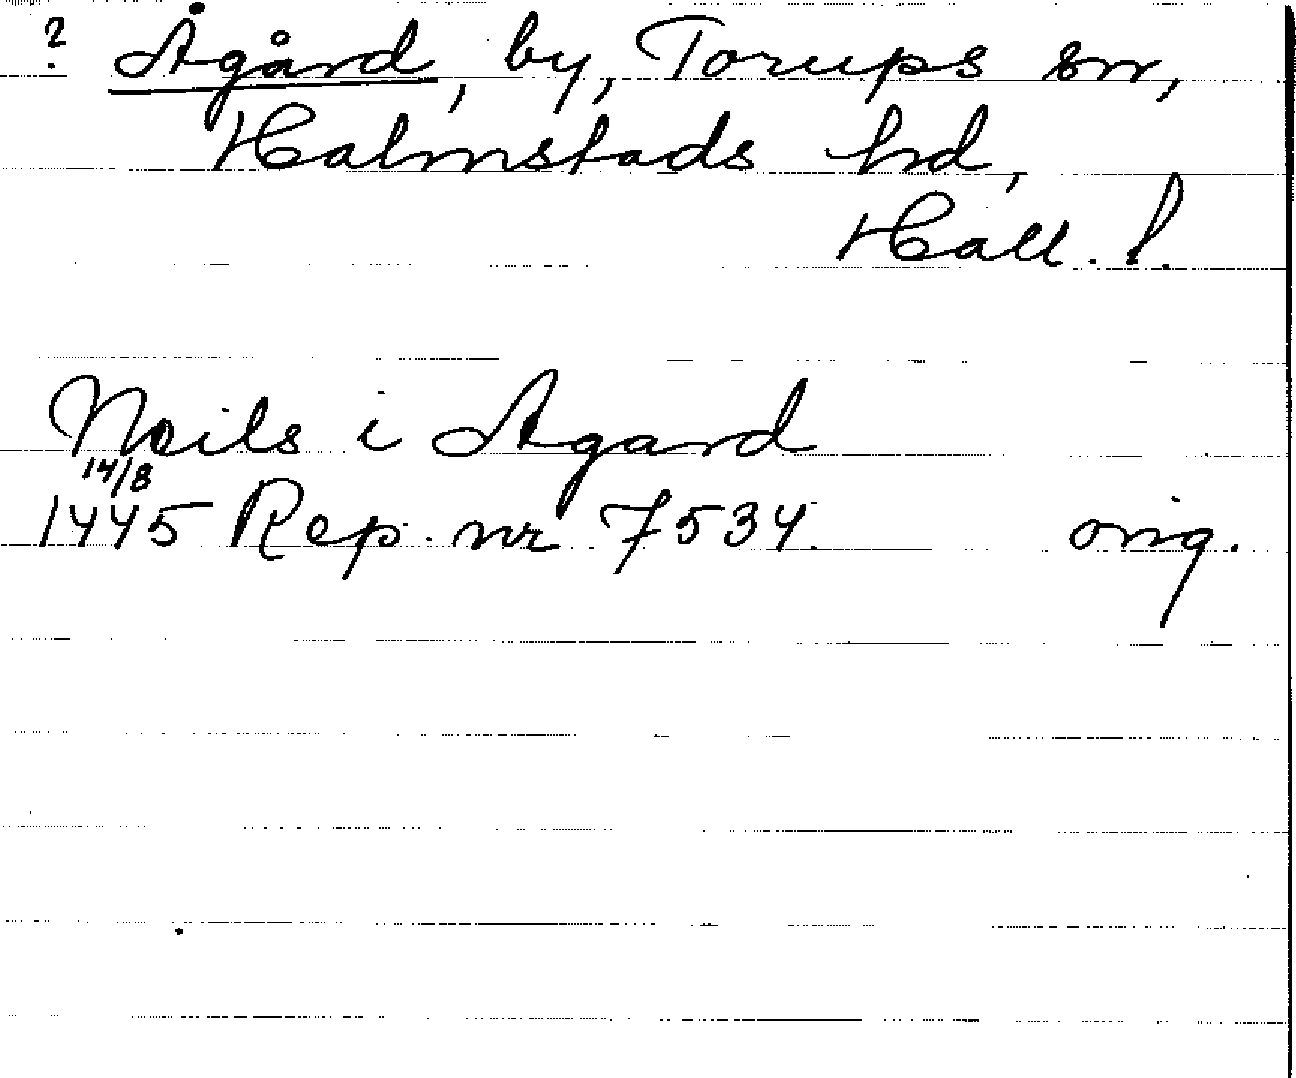 ? Ågård, by, Torups sn,
Halmstads hd,
Hall. l.
Neils i Agard
14/8
1445 Rep. nr 7534. orig.